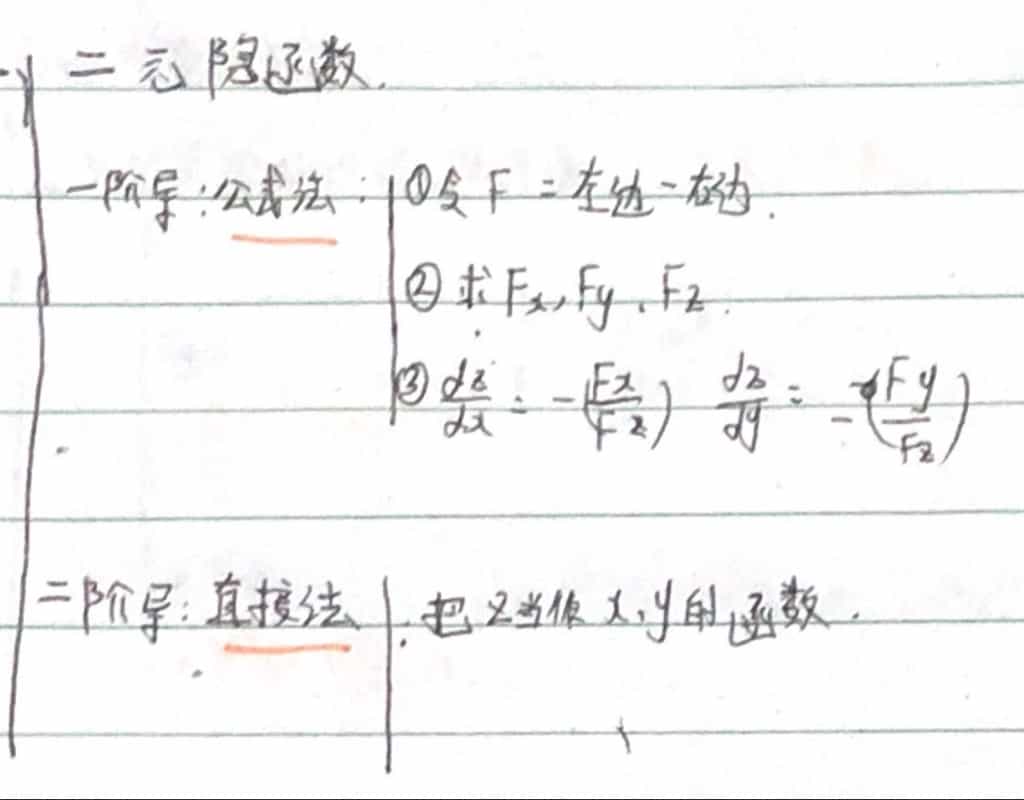 二元隐函数.
一阶导:公式法: ①令 F = 左边-右边.
②求 Fx, Fy, Fz.
③ dz/dx = -(Fx/Fz) dz/dy = -(Fy/Fz)
二阶导:直接法 : 把 z当做 x,y的函数.